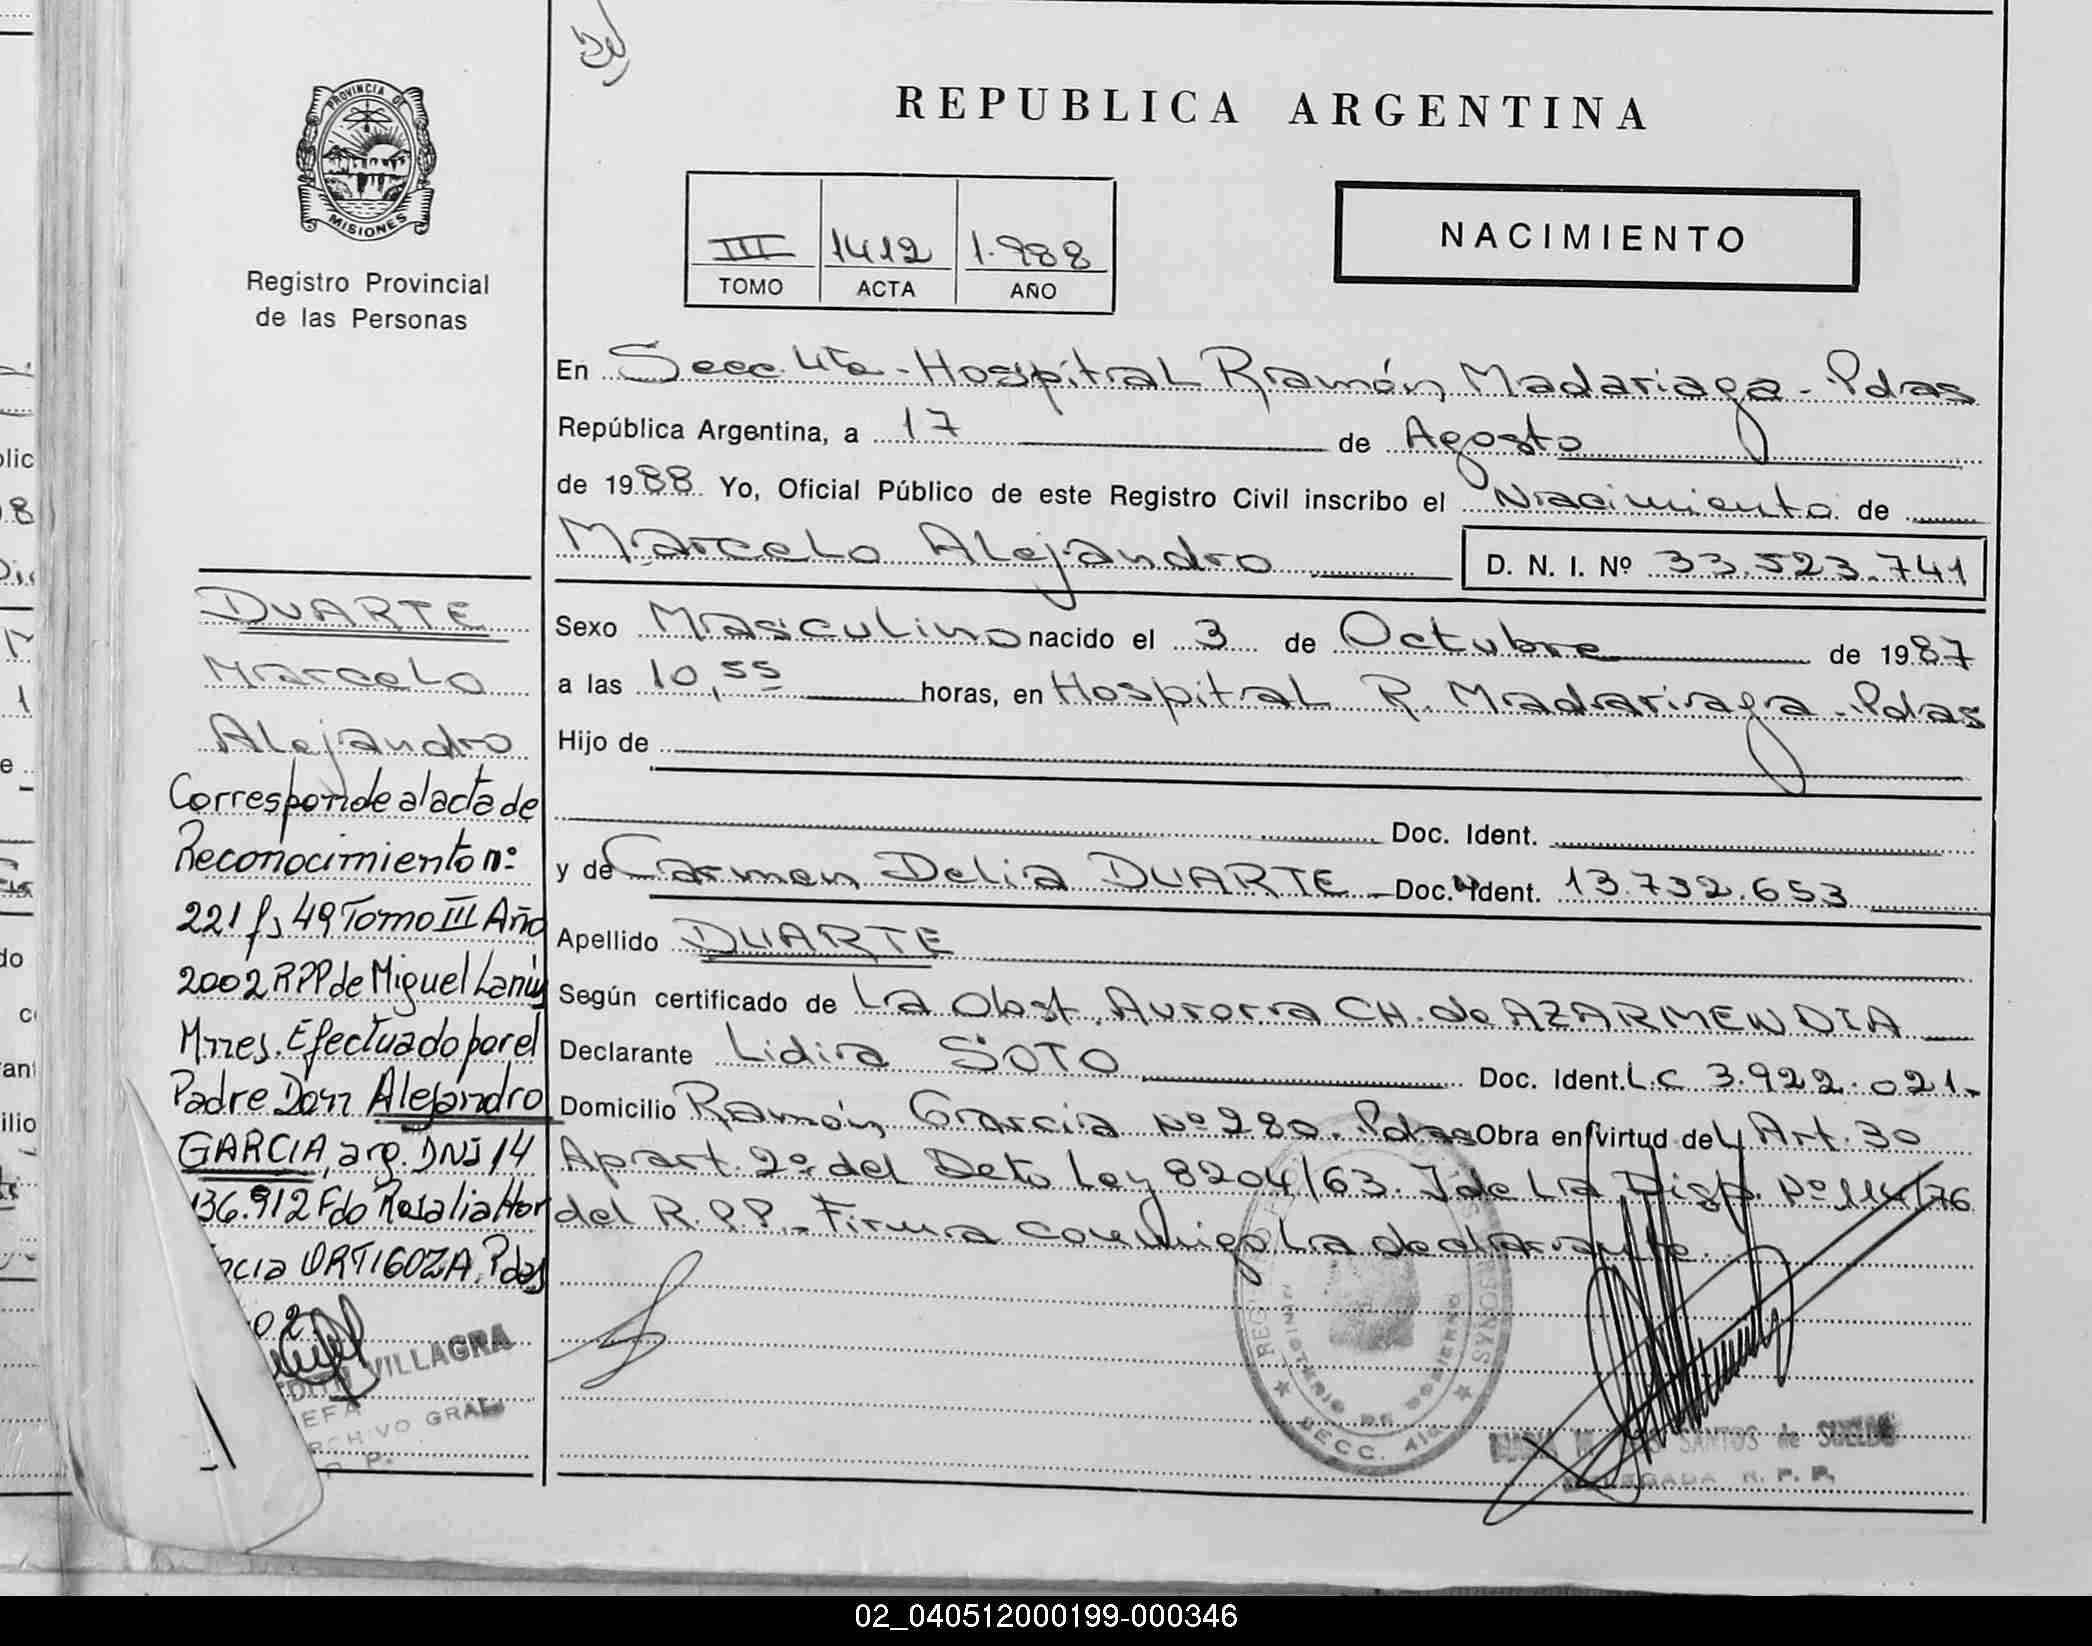 PROVINCIA DE
MISIONES
Registro Provincial
de las Personas
REPUBLICA ARGENTINA
III 1412 1.988
TOMO ACTA AÑO
NACIMIENTO
En Secc. 4ta - Hospital Ramón Madariaga - Pdas
República Argentina, a 17 de Agosto
de 1988 Yo, Oficial Público de este Registro Civil inscribo el Nacimiento de
Marcelo Alejandro D. N. I. Nº 33.523.741
Sexo Masculino nacido el 3 de Octubre de 1987
a las 10,55 horas, en Hospital R. Madariaga - Pdas
Hijo de
Doc. Ident.
y de Carmen Delia DUARTE - Doc. Ident. 13.732.653
Apellido DUARTE
Según certificado de La Obst. Aurora CH. de AZARMENDIA
Declarante Lidia SOTO Doc. Ident. L C 3.922.021.-
Domicilio Ramón Garcia Nº 280. Pdas Obra en virtud del Art. 30
Apart. 2º del Dcto Ley 8204/63. I de La Disp. Nº 114/76
del R.P.P. - Firma conmigo La declarante.
DUARTE
Marcelo
Alejandro
Corresponde al acta de
Reconocimiento nº
221 fs 49 Tomo III Año
2002 RPP de Miguel Lanús
Mnes. Efectuado por el
Padre Don Alejandro
GARCIA, arg. DNI 14
136.912 Fdo Rosalia Hor
ncia ORTIGOZA. Pdas
02
VILLAGRA
JEFA
ARCHIVO GRAL
SECC. 4ta
SANTOS de SUELDO
DELEGADA R. P. P.
02_040512000199-000346